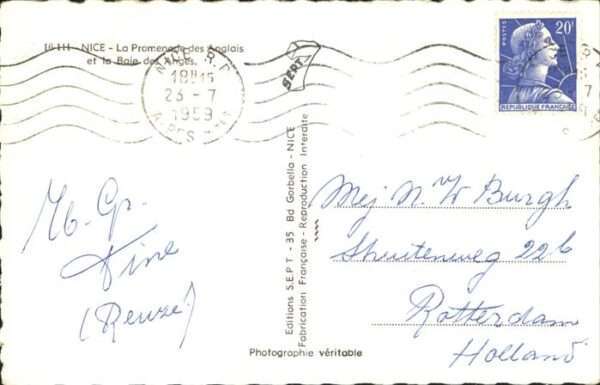 16-111 - NICE - La Promenade des Anglais
et la Baie des Anges.
NICE R.P.
18H15
23 - 7
1959
ALPES MMES
SEPT
POSTES
20F
REPUBLIQUE FRANÇAISE
H. Gr.
Dine
(Reuze)
Editions S.E.P.T - 35 Bd Gorbella - NICE
Fabrication Française - Reproduction Interdite
Mej N. W Burgh
Sluitenweg 22b
Rotterdam
Holland
Photographie véritable